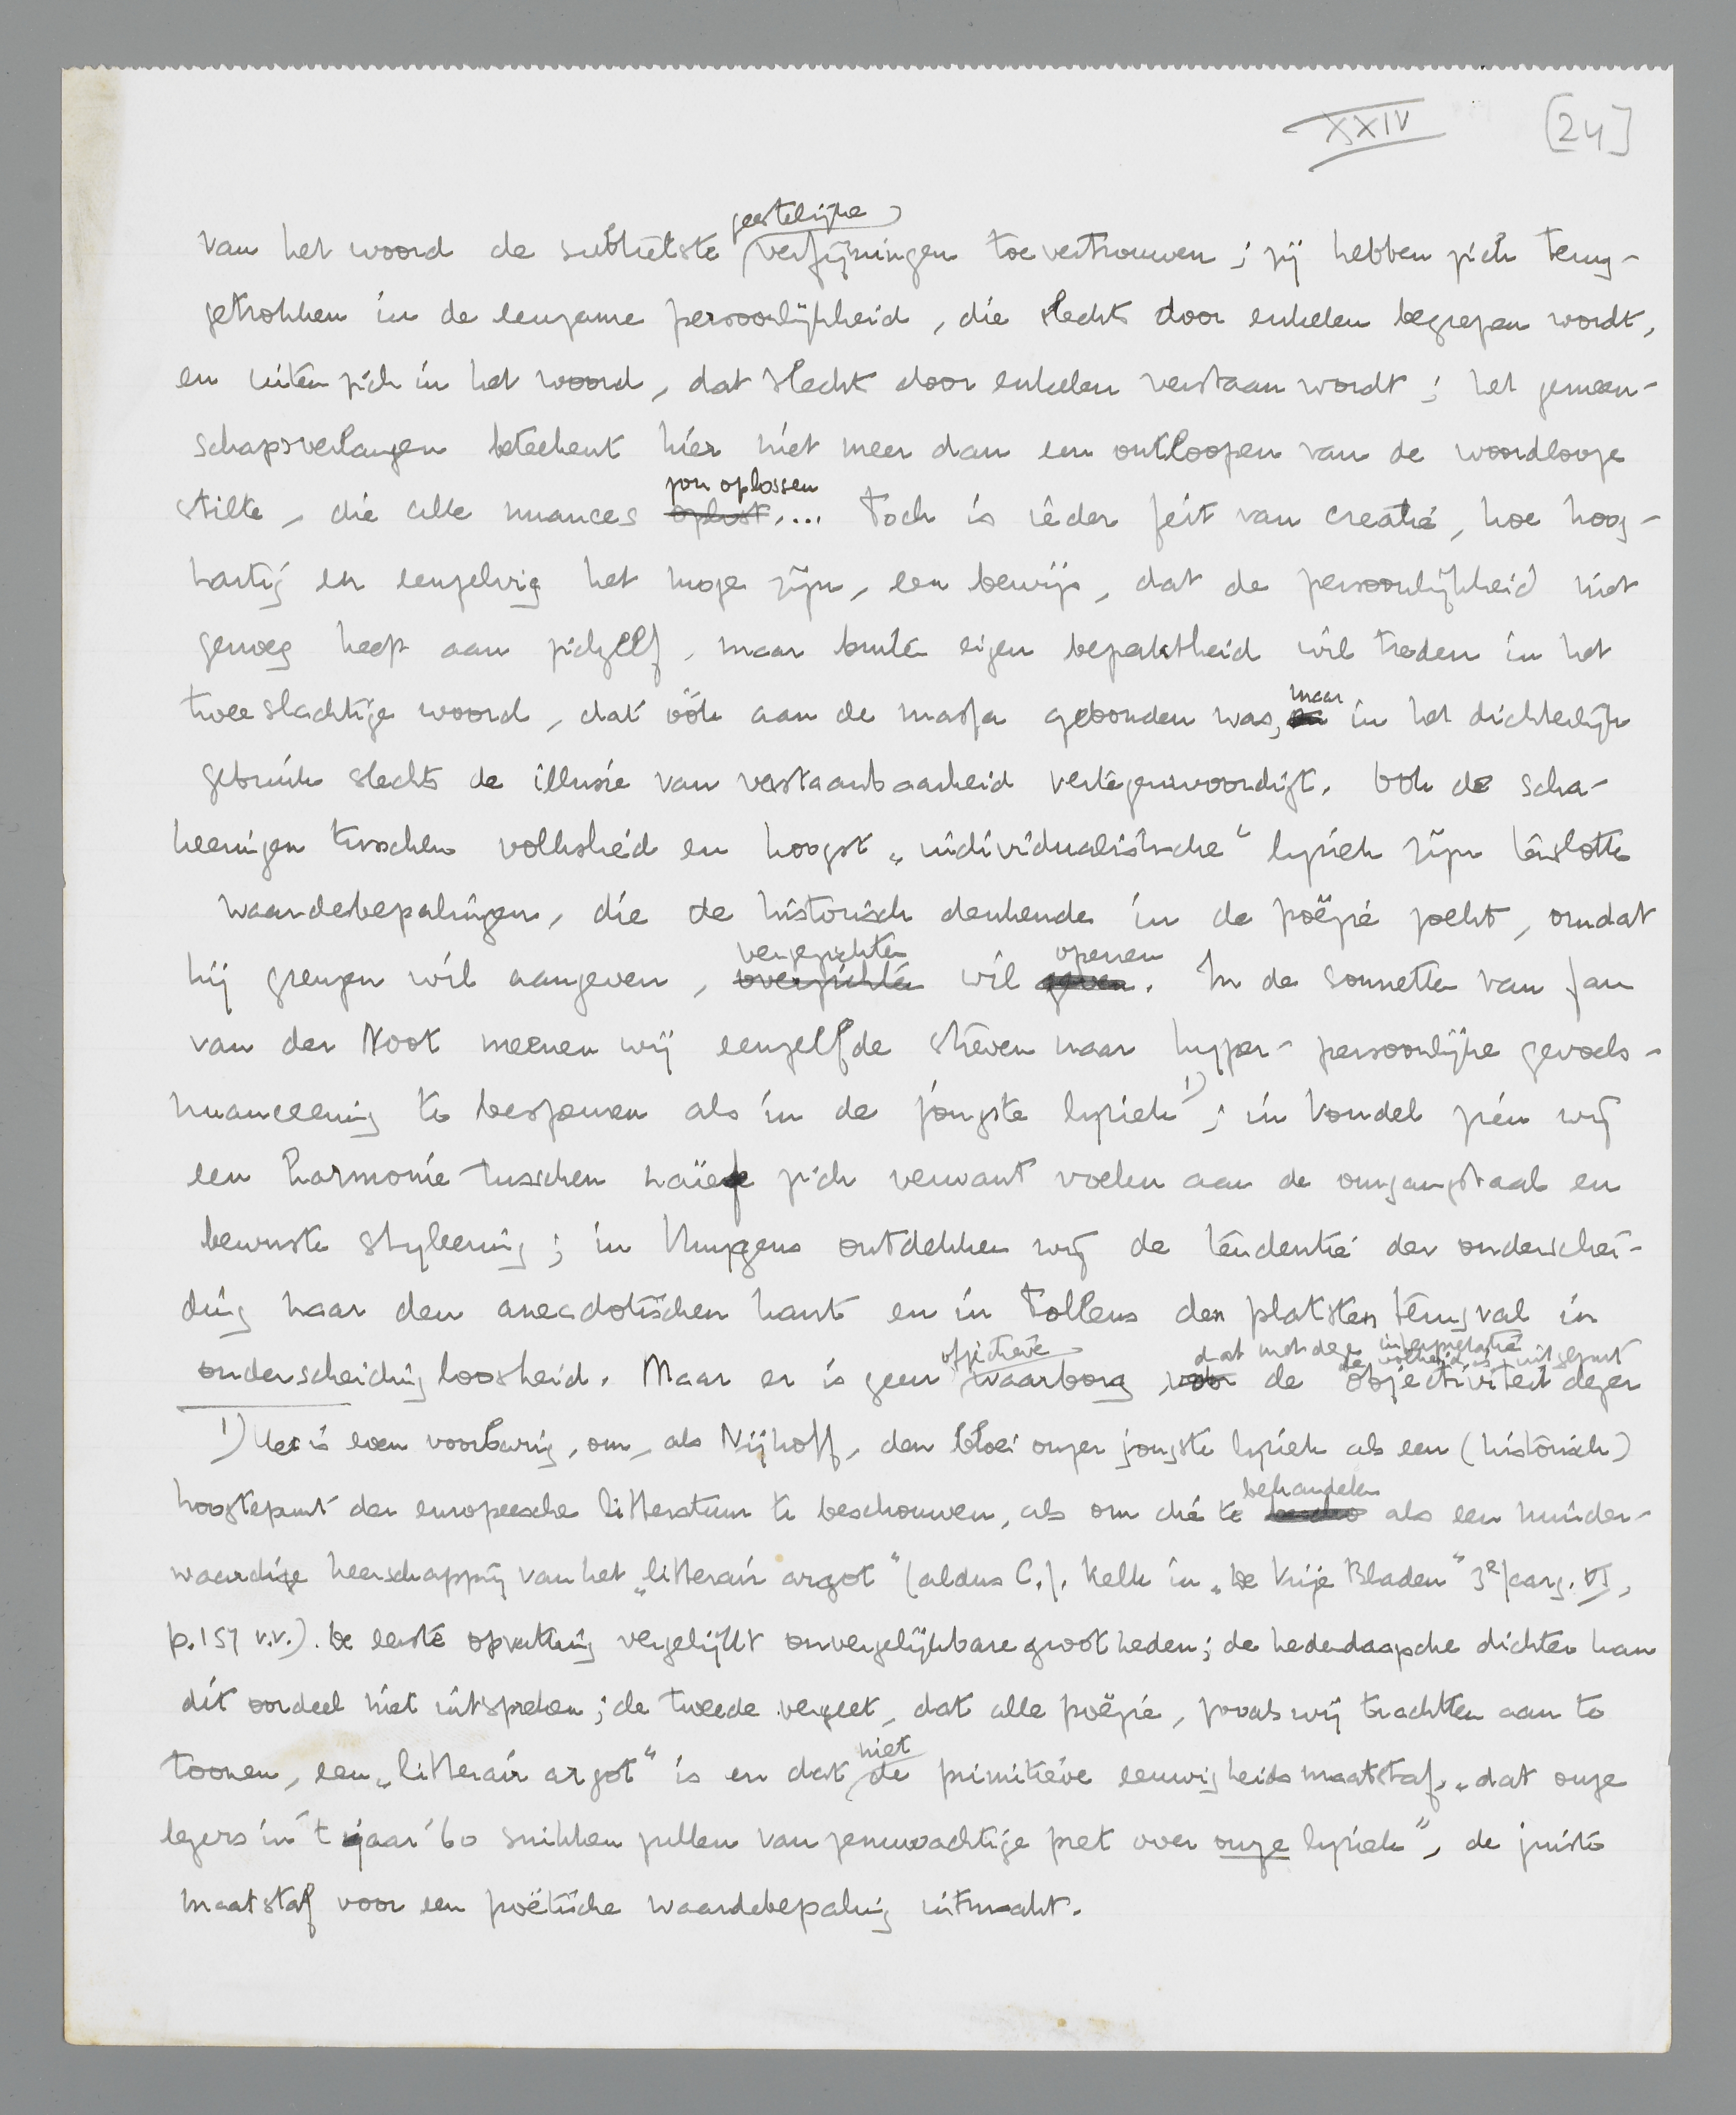 XXIV [24]
geestelijke
van het woord de subtielste verfijningen toevertrouwen; zij hebben zich terug-
getrokken in de eenzame persoonlijkheid, die slechts door enkelen begrepen wordt,
en uiten zich in het woord, dat slechts door enkelen verstaan wordt; het gemeen-
schapsverlangen beteekent hier niet meer dan een ontloopen van de woordlooze
zou oplossen
stilte, die alle nuances oplost.... Toch is ieder feit van creatie, hoe hoog-
hartig en eenzelvig het moge zijn, een bewijs, dat de persoonlijkheid niet
genoeg heeft aan zichzelf, maar buiten eigen beperktheid wil treden in het
maar
tweeslachtige woord, dat óók aan de massa gebonden was, en in het dichterlijk
gebruik slechts de illusie van verstaanbaarheid vertegenwoordigt. Ook de scha-
keeringen tusschen volkslied en hoogst „individualistische" lyriek zijn tenslotte
waardebepalingen, die de historisch denkende in de poëzie zoekt, omdat
vergezichten openen
hij grenzen wil aangeven, overzichten wil geven. In de sonnetten van Jan
van der Noot meenen wij eenzelfde streven naar hyper-persoonlijke gevoels-
nuanceering te bespeuren als in de jongste lyriek 1); in Vondel zien wij
een harmonie tusschen naïef zich verwant voelen aan de omgangstaal en
bewuste styleering; in Huygens ontdekken wij de tendentie der onderschei-
ding naar den anecdotischen kant en in Tollens den platsten terugval in
objectieve dat met deze interpretatie
de volheid is uitgeput
onderscheidingloosheid. Maar er is geen waarborg voor de objectiviteit dezer
1) Het is even voorbarig, om, als Nijhoff, den bloei onzer jongste lyriek als een (historisch)
behandelen
hoogtepunt der europeesche litteratuur te beschouwen, als om die te als een minder-
waardige heerschappij van het „litterair argot" (aldus C.J. Kelk in „De Vrije Bladen" 3e Jaarg. VI,
p.157 v.v.). De eerste opvatting vergelijkt onvergelijkbare grootheden; de hedendaagsche dichter kan
dit oordeel niet uitspreken; de tweede vergeet, dat alle poëzie, zooals wij trachtten aan te
niet
toonen, een „litterair argot" is en dat de primitieve eeuwigheidsmaatstaf, „dat onze
legers in 't jaar '60 snikken zullen van zenuwachtige pret over onze lyriek", de juiste
maatstaf voor een poëtische waardebepaling uitmaakt.